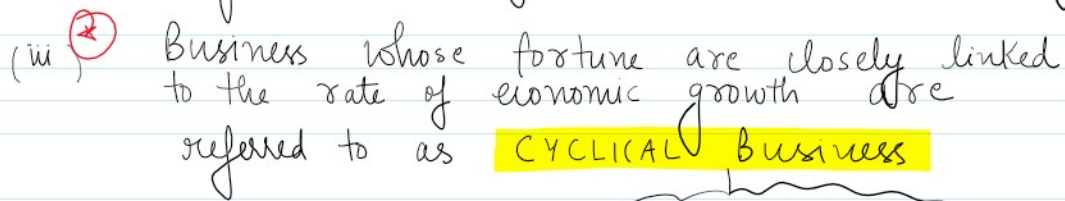 (iii) Business whose fortune are closely linked
to the rate of economic growth are
referred to as CYCLICAL Business